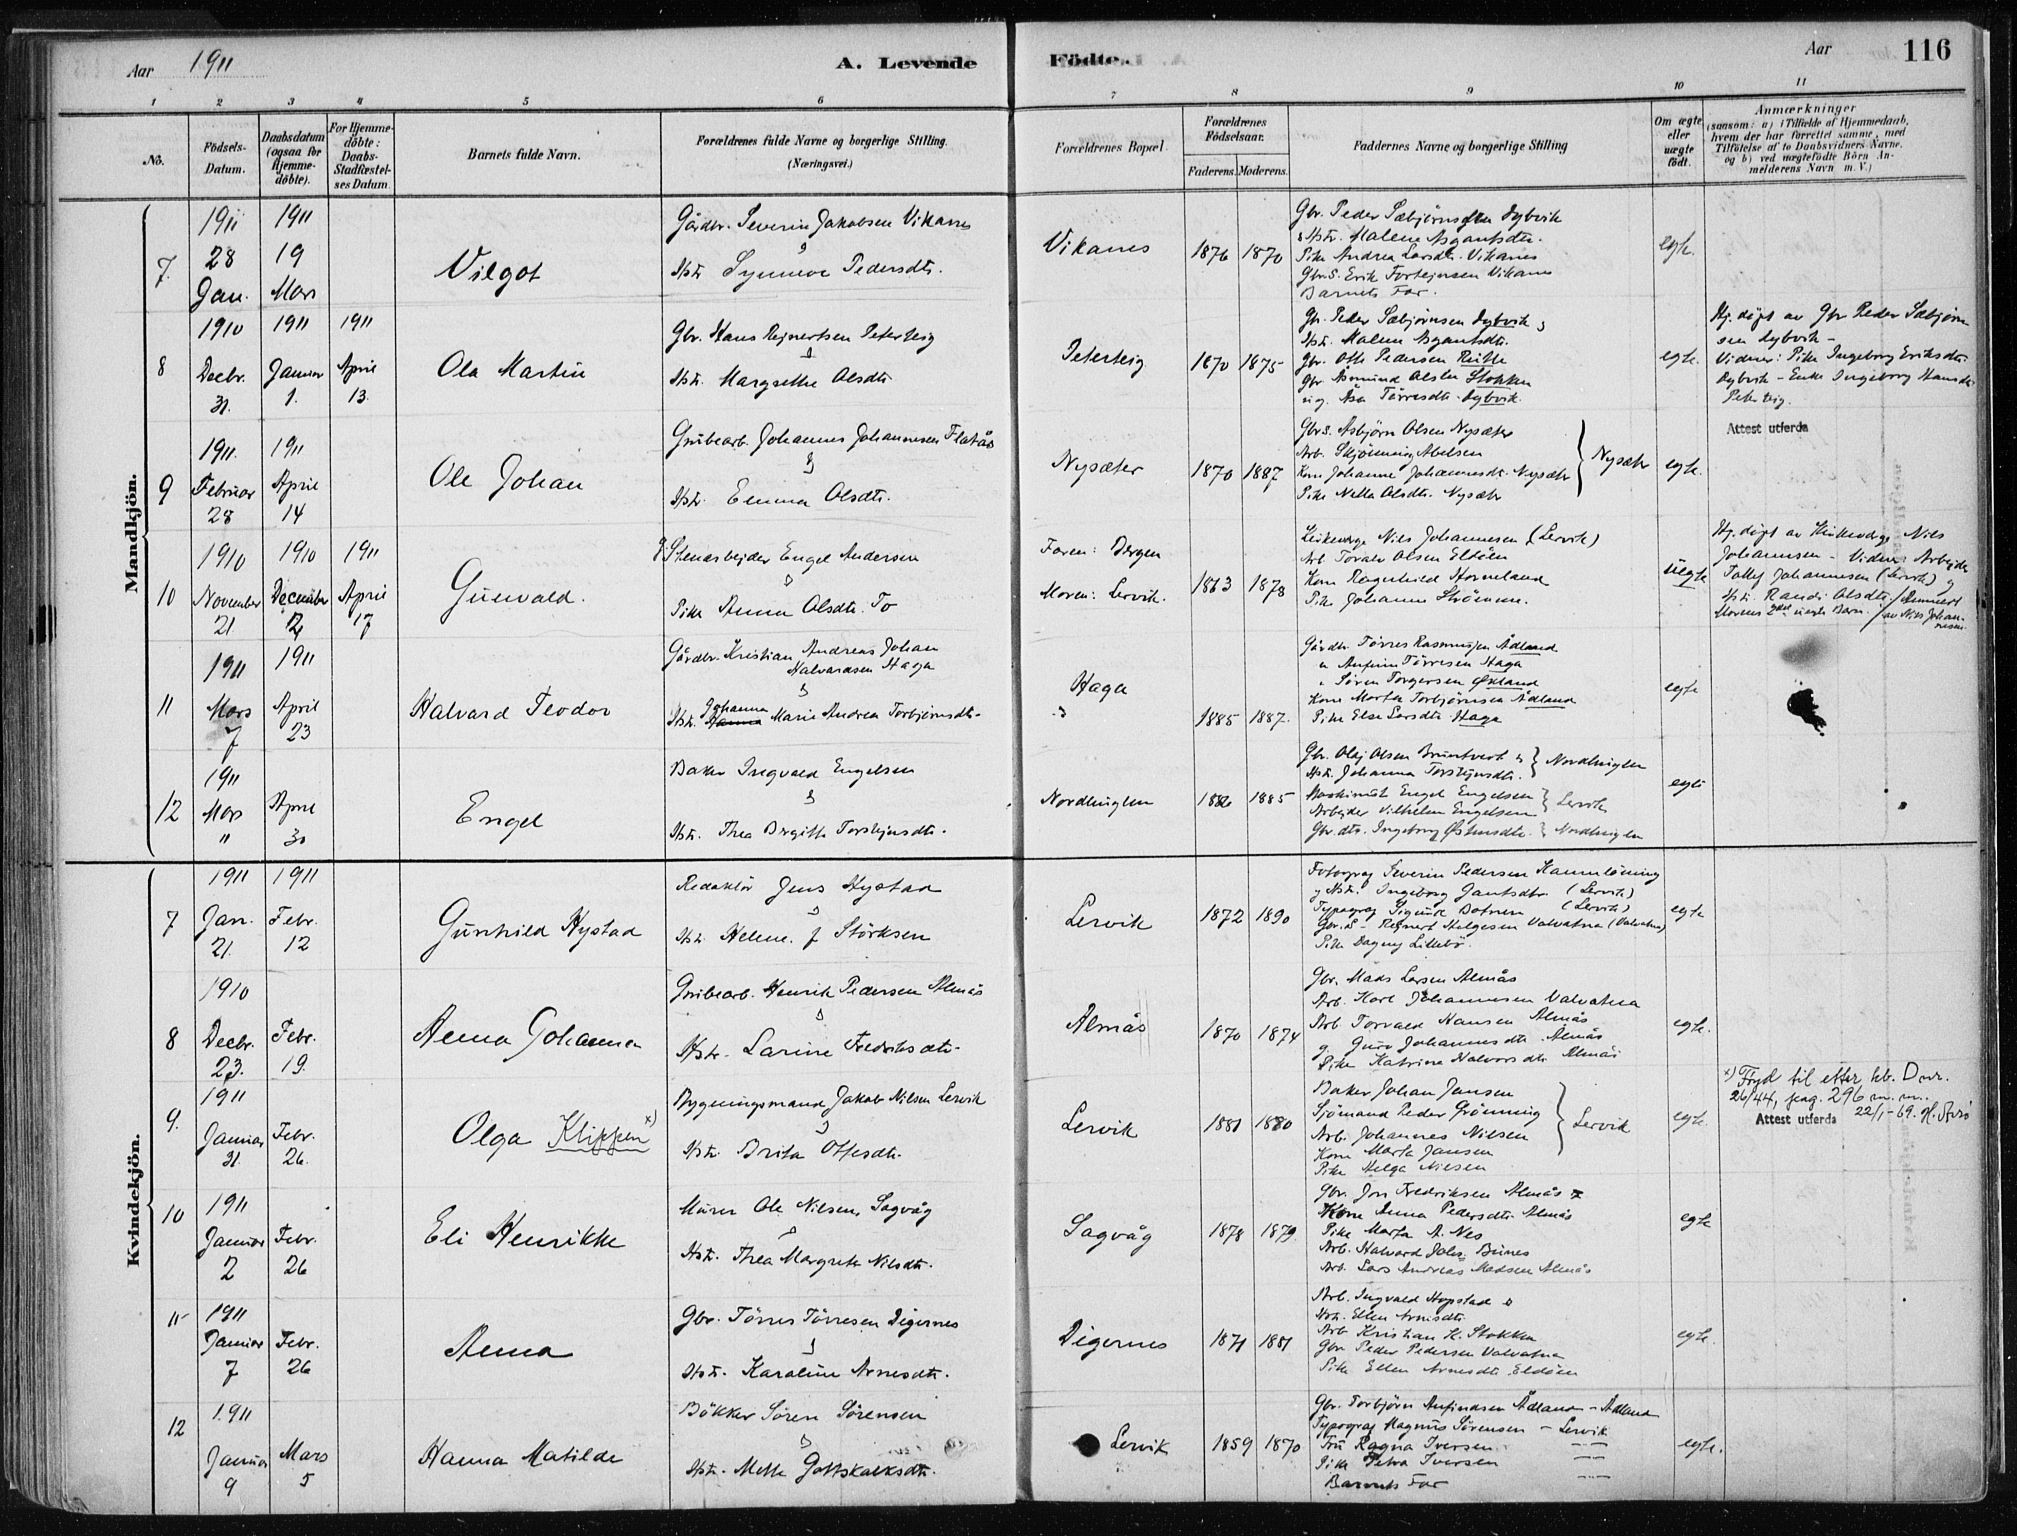 Aar 1911
A. Levende
Födte.
Aar
116
1 2 3 4 5 6 7 8 9 10 11
No.
Födsels-
Datum.
Daabsdatum
(ogsaa for
Hjemme-
döbte).
For Hjemme-
döbte:
Daabs-
Stadfæstel-
ses Datum.
Barnets fulde Navn.
Forældrenes fulde Navne og borgerlige Stilling.
(Næringsvei.)
Forældrenes Bopæl.
Forældrenes
Födselsaar.
Faderens. Moderens.
Faddernes Navne og borgerlige Stilling
Om ægte
eller
uægte
födt.
Anmærkninger
(saasom: a) i Tilfælde af Hjemmedaab,
hvem der har forrettet samme, med
Tilföielse af to Daabsvidners Navne.
og b) ved uægtefödte Börn An-
melderens Navn m. V.)
Mandkjön.
7.
1911
28
Jan.
1911
19
Mars
Vilgot
Gårdbr. Severin Jakobsen Vikanes
&
Hstr. Synneve Pedersdtr.
Vikanes
1876 1870
Gbr. Peder Sæbjørnsen Dybvik
& Hstr. Malene Asgautsdtr.
Pike Andrea Larsdtr. Vikanes
Gbr.s. Erik Torteinsen Vikanes
Barnets Far.
egte.
8
1910
Decbr.
31.
1911
Januar
1.
1911
April
13.
Ola Martin
Gbr. Hans Reinertsen Peterteig
&
Hstr. Margrethe Olsdtr.
Peterteig
1870 1875
Gbr. Peder Sæbjørnsen Dybvik &
Hstr. Malene Asgautsdtr.
Gbr. Otto Pedersen
Gbr. Åsmund Olsen Stokken
ug. Åsa Tørresdtr. Dybvik.
egte.
Hj. døpt av Gbr Peder Sæbjørn-
sen Dybvik –
Vidner: Pike Ingeborg Eriksdtr.
Dybvik – Enke Ingeborg Hansdtr.
Peterteig.
9
1911.
Februar
28
1911
April
14
Ole Johan
Grubearb. Johannes Johannesen Flatås
&
Hstr. Emma Olsdtr.
Nysæter
1870 1887
Gbr.s. Asbjörn Olsen Nysæter
Arb. Skjønning Abelsen
Kone Johanne Johannesdtr. Nysæter
Pike Nella Olsdtr. Nysæter
Nysæter
egte.
Attest utferda
10
1910
November
21
1910
December
12
1911
April
17
Gunvald.
Stenarbejder Engel Andersen
&
Pike Anna Olsdtr. To
Faren: Bergen
Moren: Lervik.
1863 1878
Nils Johannesen (Lervik)
Arb. Torvald Olsen Eldöen
Kone Ragnhild Hovneland
Pike Johanne Strömme.
uegte
Hj. døpt av Nils
Johannesen – Vidner: Arbejder
Tollef Johannesen (Lervik) og
Hstr. Randi Olsdtr. / Anmeldt
Morens 2det uegte Barn. / av Nils Johan-
nesen.
11
1911
Mars
7
1911
April
23
Halvard Teodor
Gårdbr. Kristian Andreas Johan
Halvardsen Haga
&
Johanna
Hstr. Hanna Marie Andrea Torbjørnsdtr.
Haga
1885 1887.
Gårdbr. Tørres Rasmussen Ådland
" Anfinn Tørresen Haga
" Søren Torgersen Økland
Kone Marta Torbjørnsen Ådland
Pike Else Larsdtr. Haga
egte
12
1911
Mars
"
April
30
Engel
Baker Ingvald Engelsen
&
Hstr. Thea Bergitte Torsteinsdtr.
Nordhuglen
1886 1885
Gbr. Olaj Olsen Bruntvedt &
Hstr. Johanna Torsteinsdtr.
Nordhuglen
Maskinist Engel Engelsen
Arbejder Vilhelm Engelsen
Lervik
Gbr.dtr. Ingeborg
Nordhuglen
egte
Kvindekjön.
7
1911
Jan.
21.
1911
Febr.
12
Gunhild Hystad
Redaktör Jens Hystad
&
Hstr. Helene f. Störksen
Lervik
1872 1890
Fotograf Severin Pedersen Hammlöning
& Hstr. Ingeborg Jantsdtr. (Lervik)
Typograf Sigurd Botnen (Lervik)
Gbr.s. Reinert Helgesen Valvatne (Valvatne)
Pike Dagny Lillebö.
egte
8
1910
Decbr.
23.
Febr.
19.
Anna Johanna
Grubearb. Henrik Pedersen Almås
&
Hstr. Larine Fredriksdtr.
Almås
1870 1874
Gbr. Mads Larsen Almås
Arb. Karl Johannesen Valvatna
Arb. Torvald Hansen Almås
g. Guro Johannesdtr. Almås
Pike Katrine Halvorsdtr. Almås
egte.
9.
1911
Januar
31.
Febr.
26.
Olga Klippen x)
Bygningsmand Jakob Nilsen Lervik
&
Hstr. Brita Ottesdtr.
Lervik
1881 1880
Baker Johan Jansen
Sjömand Peder Grönning
Arb. Johannes Nilsen
Kone Marta Jansen
Pike Helga Nilsen
Lervik
egte.
x) Föyd til etter kb. D nr.
26/44, pag. 296 m.m.
22/1-69.
Attest utferda
10
1911
Januar
2
Febr.
26
Eli Henrikke
Murer Ole Nilsen, Sagvåg
&
Hstr. Thea Margrete Nilsdtr.
Sagvåg
1878 1879.
Gbr. Jon Fredriksen Almås &
Kone Anna Pedersdtr. Almås
Pike Marta A. Nes
Arb. Halvard Johs. Bünes
Arb. Lars Andreas Madsen Almås
egte
11
1911
Januar
7
Febr.
26
Anna
Gbr. Törres Törresen Digernes
&
Hstr. Karoline Arnesdtr.
Digernes
1871 1881
Arb. Ingvald Hopstad &
Hstr. Ellen Arnesdtr.
Arb Kristian H. Stokken
Gbr Peder Pedersen Valvatna
Pike Ellen Arnesdtr. Eldöen
egte.
12
1911
Januar
9
Mars
5
Hanna Matilde
Bökker Sören Sörensen
&
Hstr. Mette Gottskalksdtr.
Lervik
1859 1870
Gbr. Torbjörn Anfindsen Ådland – Ådland
Typograf Magnus Sörensen – Lervik
Fru Ragna Iversen – " –
Pike Petra Iversen – " –
Barnets Far
egte.